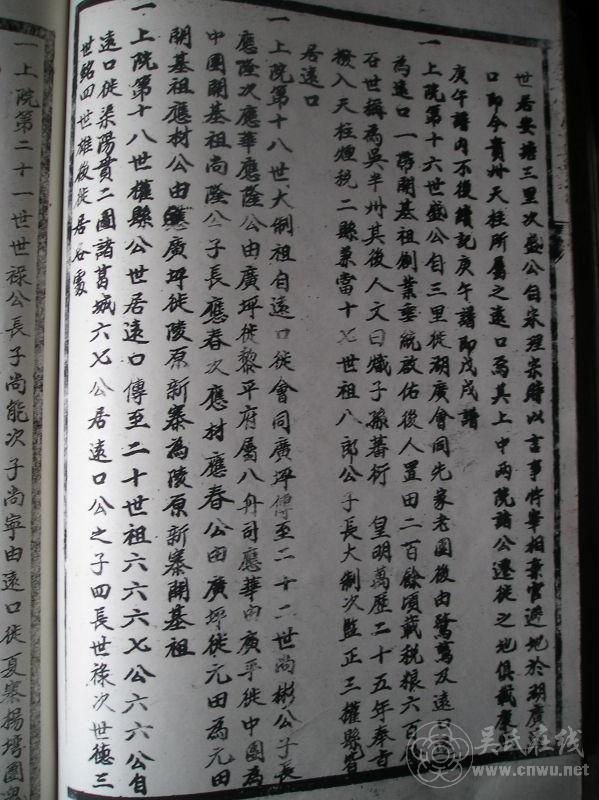 世居安塘三里次盛公自宋理宗時以言事忤宰相棄官避地於湖廣
口即今貴州天柱所屬之遠口為其上中兩院諸公遷徙之地俱載庚
庚午譜內不復續記庚午譜即戊戌譜
一上院第十六世盛公自三里徙湖廣會同先家老團後由鷺鷥及遠口
為遠口一帶開基祖創業垂統啟佑後人置田二百餘頃載稅糧六百
石世稱為吳半州其後人文日熾子孫蕃衍 皇明萬歷二十五年奉古
撥入天柱煙稅二縣兼當十七世祖八郎公子長大制次監正三權縣皆
居遠口
一上院第十八世大制祖自遠口徙會同廣坪傳至二十二世尚彬公子長
應隆次應華應隆公由廣坪徙黎平府屬八舟司應華由廣平徙中團為
中團開基祖尚隆公子長應春次應材應春公由廣坪徙元田為元田
開基祖應材公由廣坪徙陵原新寨為陵原新寨開基祖
一上院第十八世權縣公世居遠口傳至二十世祖六六六七公六六公自
遠口徙渠陽貫二圖諸葛城六七公居遠口公之子四長世祿次世德三
世銘四世雄後徙居各處
一上院第二十一世世祿公長子尚能次子尚寧由遠口徙夏寨楊塆團
吳氏在线
www.cnwu.net